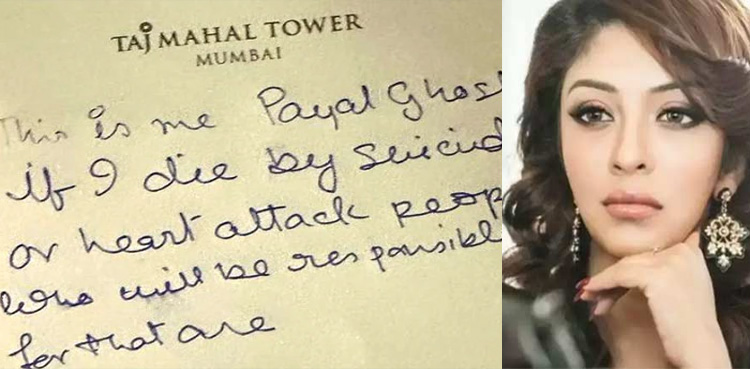 TAJ MAHAL TOWER
MUMBAI
This is me Payal Ghosh
if I die by suicid
or heart attack peop
who will be responsible
for that are